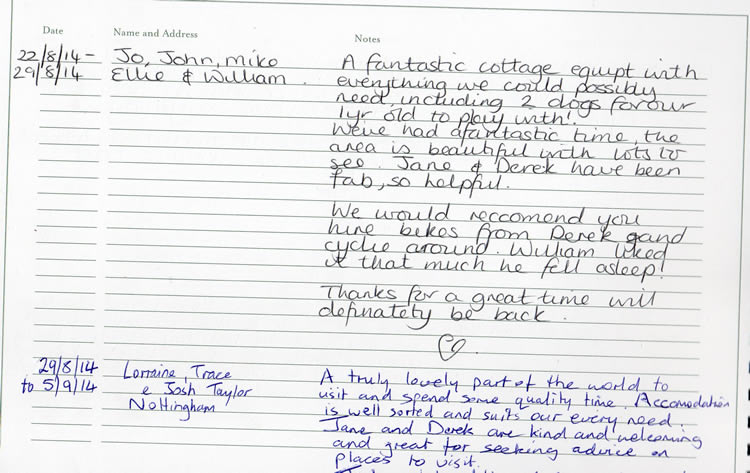 Date Name and Address Notes
22/8/14 - Jo, John, mike A fantastic cottage equipt with
29/8/14 Ellie & William. everything we could possibly
need, including 2 dogs for our
1yr old to play with!
Weve had a fantastic time, the
area is beautiful with lots to
see. Jane & Derek have been
fab, so helpful.
We would reccomend you
hire bikes from Derek and
cycle around. William liked
it that much he fell asleep!
Thanks for a great time will
definately be back.
29/8/14 Lorraine, Trace A truly lovely part of the world to
to 5/9/14 e Josh Taylor visit and spend some quality time. Accomodation
Nottingham is well sorted and suits our every need.
Jane and Derek are kind and welcoming
and great for seeking advice on
places to visit.